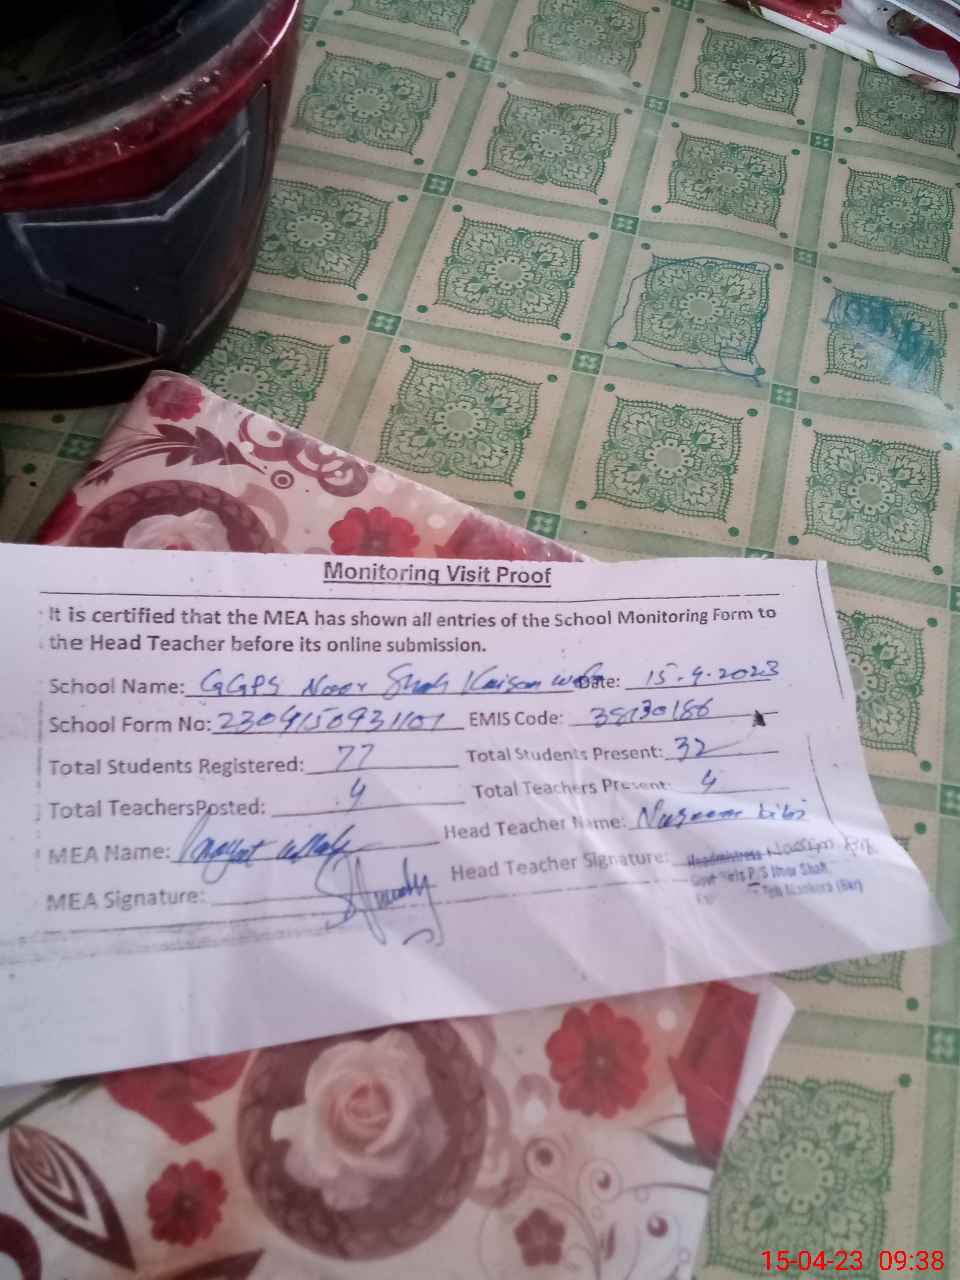 Monitoring Visit Proof
It is certified that the MEA has shown all entries of the School Monitoring Form to
the Head Teacher before its online submission.
School Name: GGPS Noor Shah Date: 15.4.2023
School Form No: 2304150931101 EMIS Code: 38130186
Total Students Registered: 77 Total Students Present: 32
Total TeachersPosted: 4 Total Teachers Present: 4
MEA Name: Head Teacher Name: bibi
MEA Signature: Head Teacher Signature: Headmistress
Govt Girls P/S Noor Shah
15-04-23 09:38